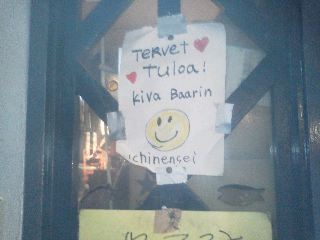 Tervet
Tuloa!
kiva Baarin
chinensei